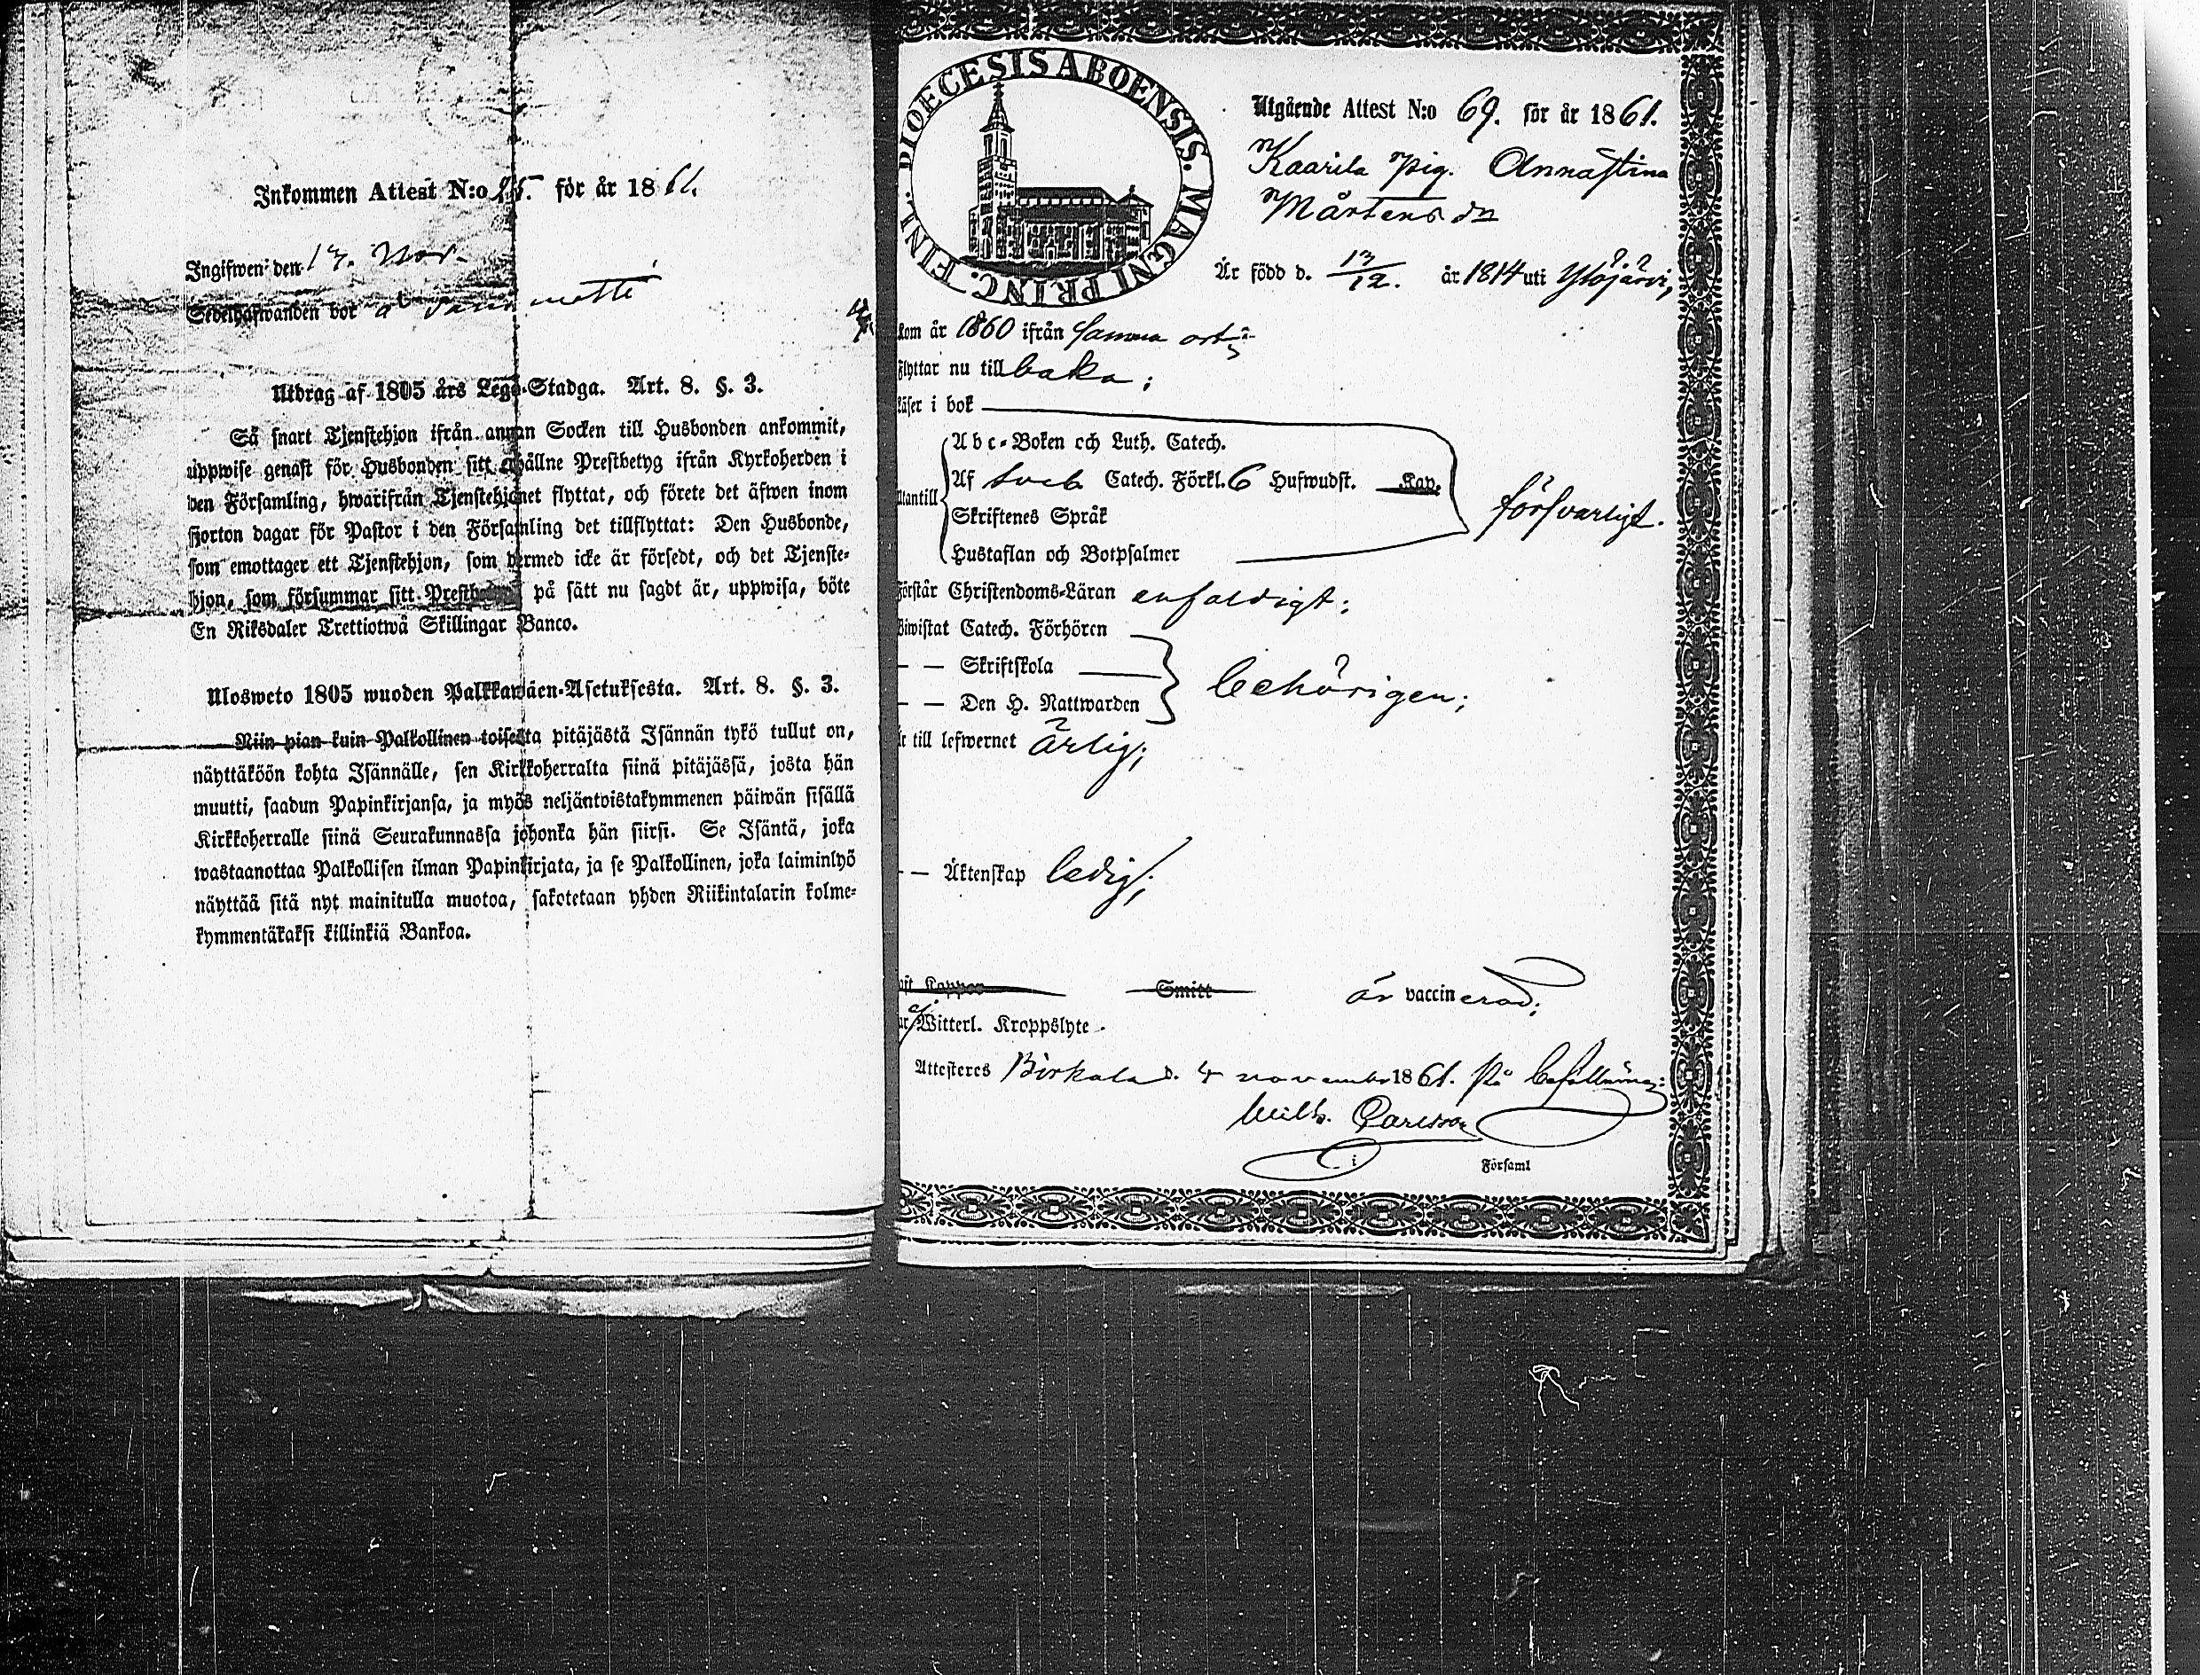 Inkommen Attest N:o för år 1861.
Ingifwen den 17. Nov.
Sedelhafwanden bor
Utdrag af 1805 års Lego-Stadga. Art. 8. §. 3.
Så snart Tjenstehjon ifrån annan Socken till Husbonden ankommit,
uppwise genast för Husbonden sitt erhållne Prestbetyg ifrån Kyrkoherden i
den Församling, hwarifrån Tjenstehjonet flyttat, och förete det äfwen inom
fjorton dagar för Pastor i den Församling det tillflyttat: Den Husbonde,
som emottager ett Tjenstehjon, som dermed icke är försedt, och det Tjenste-
hjon, som försummar sitt på sätt nu sagdt är, uppwisa, böte
En Riksdaler Trettiotwå Skillingar Banco.
Ulosweto 1805 wuoden Palkkawäen-Asetuksesta. Art. 8. §. 3.
Niin pian kuin Palkollinen toisesta pitäjästä Isännän tykö tullut on,
näyttäköön kohta Isännälle, sen Kirkkoherralta siinä pitäjässä, josta hän
muutti, saadun Papinkirjansa, ja myös neljäntoistakymmenen päiwän sisällä
Kirkkoherralle siinä Seurakunnassa johonka hän siirsi. Se Isäntä, joka
wastaanottaa Palkollisen ilman Papinkirjata, ja se Palkollinen, joka laiminlyö
näyttää sitä nyt mainitulla muotoa, sakotetaan yhden Riikintalarin kolme-
kymmentäkaksi killinkiä Bankoa.
DIOECESIS ABOENSIS. MAGNI PRINC. FINL.
Utgående Attest N:o 69. för år 1861.
Kaarila pig. Annastina
Mårtensdr
Är född d. 13/12. år 1814 uti Ylöjärvi,
kom år 1860 ifrån samma ort
Flyttar nu till baka;
Läser i bok
Abc-Boken och Luth. Catech.
Utantill Af Sveb Catech. Förkl. 6 Hufwudst. Kap.
försvarligt.
Skriftenes Språk
Hustaflan och Botpsalmer
Förstår Christendoms-Läran enfaldigt;
Biwistat Catech. Förhören
— — Skriftskola
behörigen;
— — Den H. Nattwarden
Är till lefwernet ärlig;
— — Äktenskap ledig;
Koppor Smitt är vaccinerad;
Witterl. Kroppslyte
Attesteres Birkala d. 4 november 1861. På befallning:
Wilh. Carlsson
i Församl